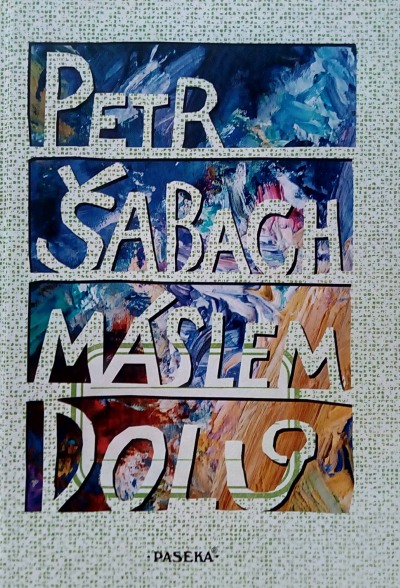 PETR
ŠABACH
MÁSLEM
DOLŮ
PASEKA